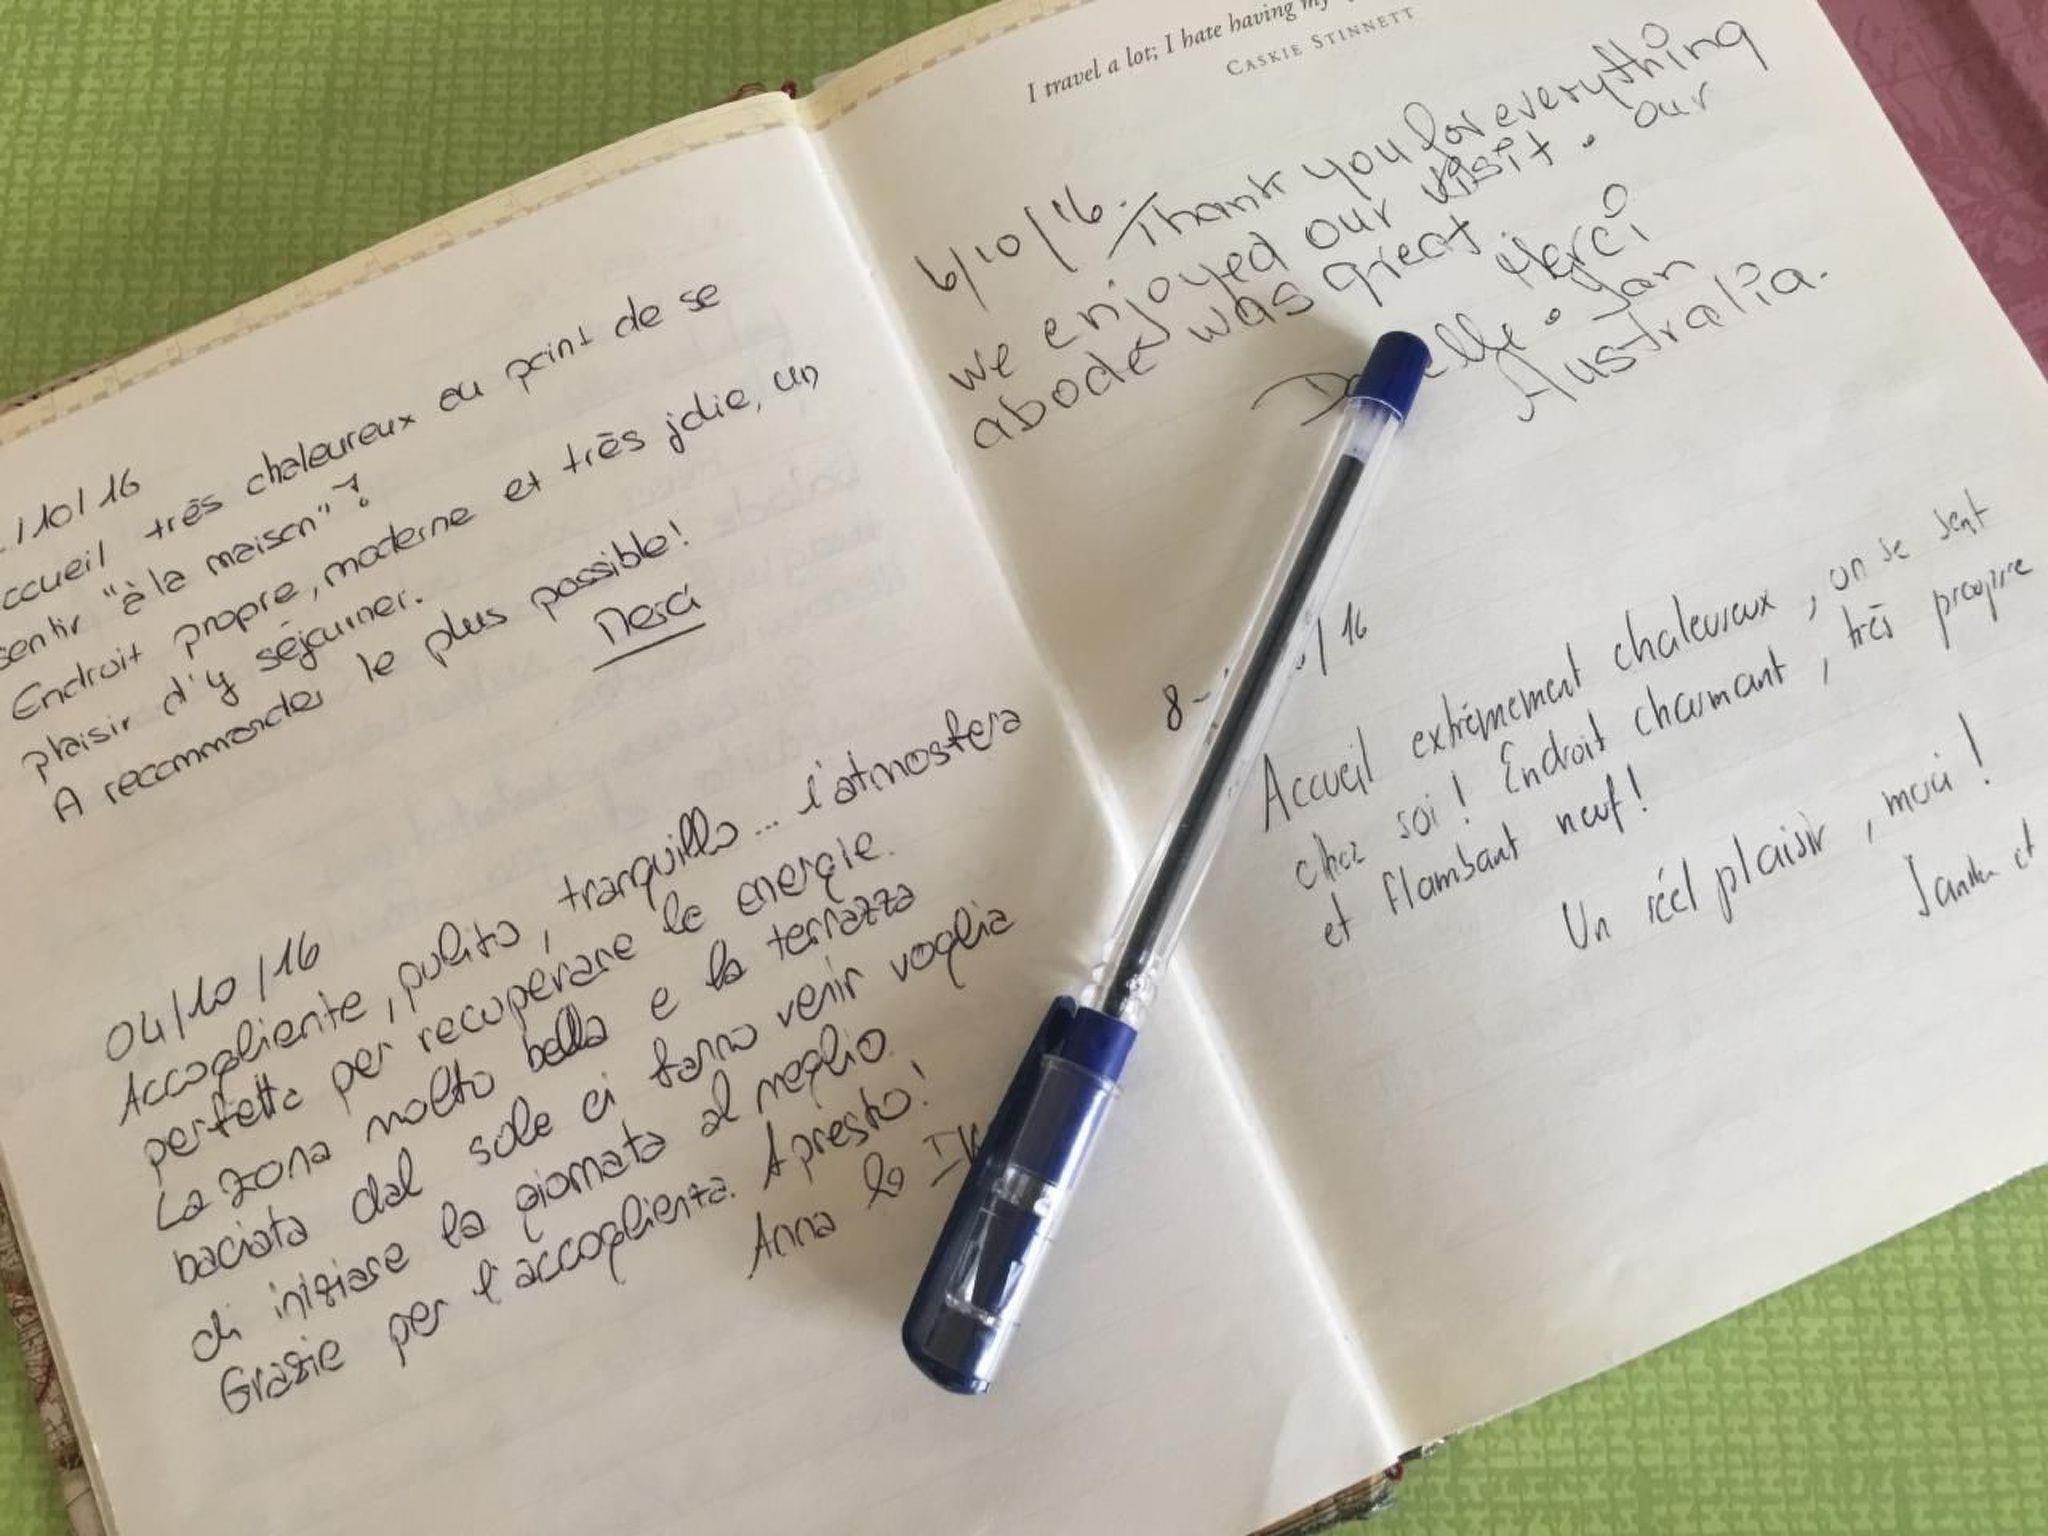 /10/16
ccueil très chaleureux au point de se
sentir "à la maison"!
Endroit propre, moderne et très jolie, un
plaisir d'y séjourner.
A recommander le plus possible!
Merci
04/10/16
Accogliente, pulito, tranquillo... l'atmosfera
perfetta per recuperare le energie.
La zona molto bella e la terrazza
baciata dal sole ci fanno venir voglia
di iniziare la giornata al meglio.
Grazie per l'accoglienza. A presto!
Anna
I travel a lot; I hate having my
CASKIE STINNETT
6/10/16. Thank you for everything
we enjoyed our visit. our
abode was great. Merci
Ian
Australia.
8- /16
Accueil extrêmement chaleureux, on se sent
chez soi! Endroit charmant, très propre
et flambant neuf!
Un réel plaisir, merci!
et